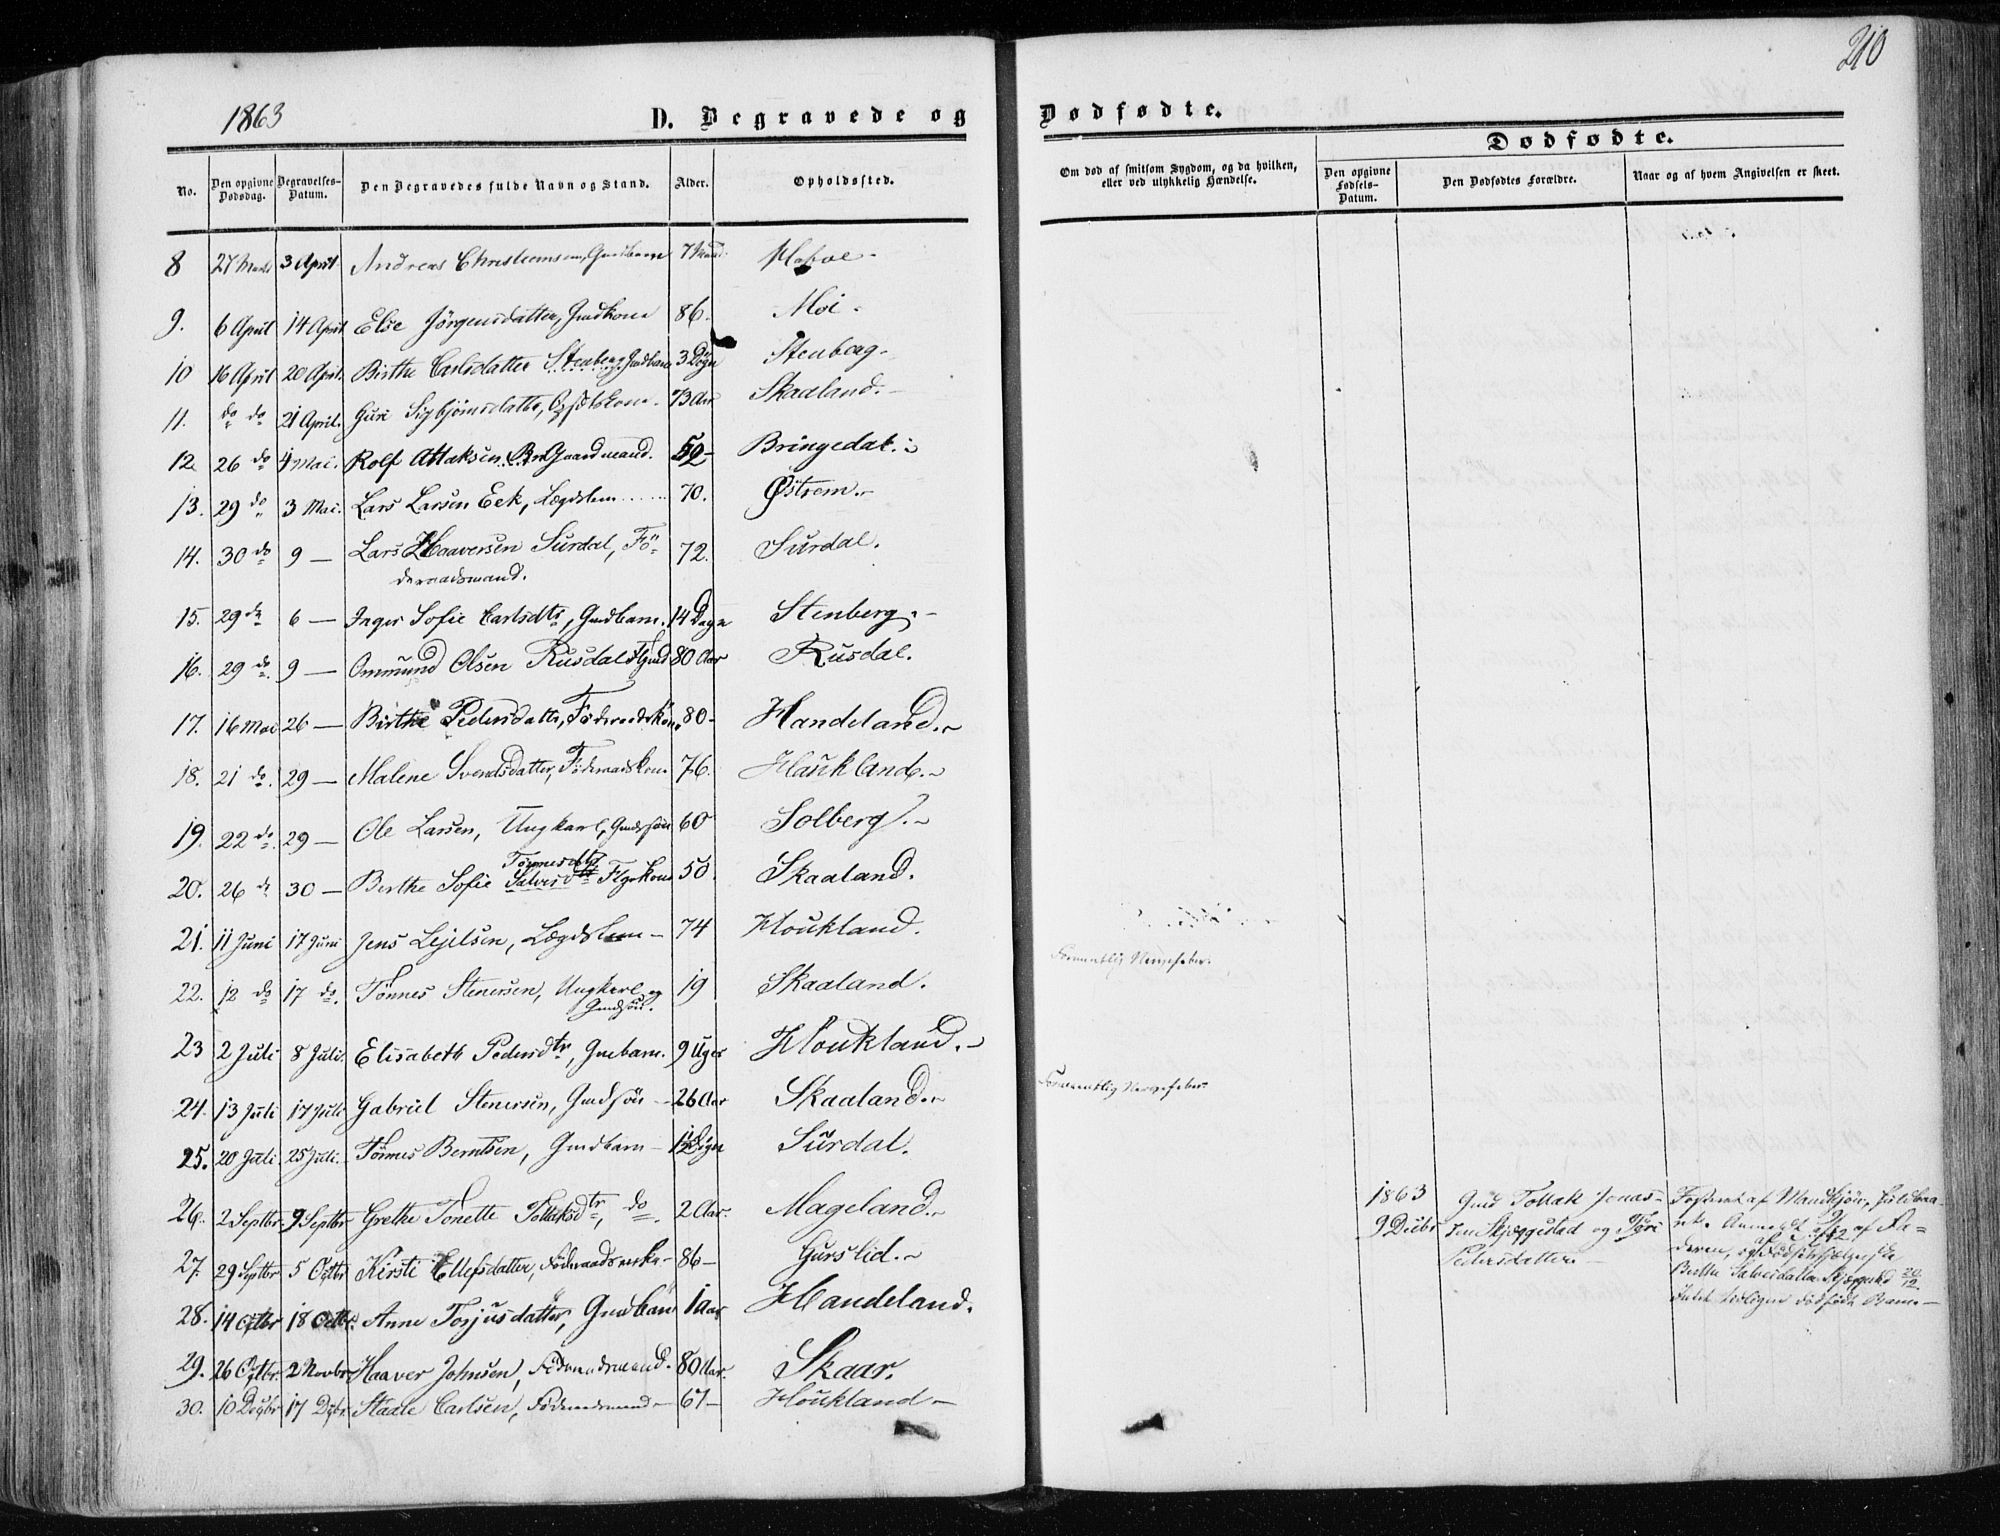 210
1863
D. Begravede og
Dødfødte.
Dødfødte.
No.
Den opgivne Dødsdag.
Begravelses-Datum.
Den Begravedes fulde Navn og Stand.
Alder.
Opholdssted.
Om død af smitsom Sygdom, og da hvilken, eller ved ulykkelig Hændelse.
Den opgivne Fødsels-Datum.
Den Dødfødtes Forældre.
Naar og af hvem Angivelsen er skeet.
8 27 Marts 3 April Andreas 7 Maaned
9. 6 April 14 April Elie Jörgensdatter, Gmdkone 86. Moi.
10 16 April 20 April. Birthe Carlsdatter Stenberg, Gmdbarn 3 Døgn Stenberg.
11. do do 21 April. Guri Sigbjörnsdatter, 73 Aar Skaaland.
12 26 do 4 Mai. Rolf Attaksen Gaardmand. 52 Bringedal.
13. 29 do 3 Mai. Lars Larsen Eek, Lægdslem 70. Østrem.
14. 30 do 9 — Lars Haaversen Surdal, Fö-
deraadsmand. 72. Surdal.
15. 29 do 6 — Inger Sofie Carlsdtr, Gmdbarn. 14 Døgn Stenberg.
16. 29 do. 9 — Ommund Olsen Rusdal 80 Aar Rusdal.
17. 16 Mai 26 — Birthe Pedersdatter, Föderaadskone 80 Handeland.
18. 21 do. 29 — Malene Svendsdatter, Föderaadskone 76. Haukland.
19. 22 do. 29 — Ole Larsen, Ungkarl, Gmdsön 60 Solberg.
Tönnesdtr
20. 26 do 30 — Berthe Sofie Salvesdtr 50. Skaaland.
21. 11 Juni 17 Juni Jens Lejelsen, Lægdslem — 74 Houkland.
22. 12 do 17 do. Tönnes Stenersen, Ungkarl og
Gmdsön. 19 Skaaland. Formentlig Nervefeber.
23 2 Juli 8 Juli. Elisabeth Pedersdtr, Gmdbarn. 9 Uger Houkland.
24. 13 Juli 17 Juli Gabriel Stenersen, Gmdsön 26 Aar Skaaland. Formentlig Nervefeber.
25. 20 Juli 25 Juli. Tönnes Berntsen, Gmdbarn Døgn Surdal.
26. 2 Septbr 9 Septbr Grethe Tonette Tollaksdtr, do. 2 Aar. Mageland.
27. 29 Septbr 5 Octbr Kirsti Ellefsdatter, 86 — Gurslid.
28. 14 Octbr 18 Octbr. Anne Torjusdatter, Gmdbarn 1 Aar Handeland.
29. 26 Octbr. 2 Novbr Haaver Johnsen, Föderaadsmand. 80 Aar. Skaar.
30. 10 Decbr 17 Decbr Staale Carlsen, Föderaadsmand — 67 — Houkland —
1863
9 Decbr
Gmd Tollak Jonas-
sen Skjeggestad og
Pedersdatter.
Fosteret af Mandkjön,
Anmeldt af Fa-
deren, og
Berthe Salvesdatter 20/12
dødfødt Barn —